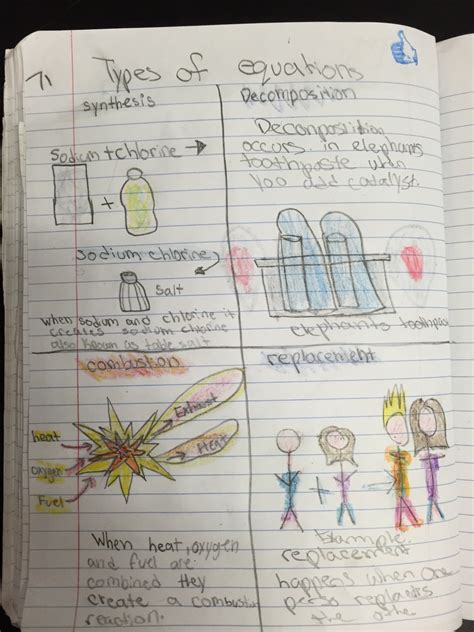 71
Types of equations
synthesis
sodium + chlorine →
+
sodium chlorine
salt
when sodum and chlorine it
creates sodium chlorine
also known as table salt
Decomposition
Deconposition
occurs in elephants
toothpaste when
you add catalyst.
elephants toothpas
combustion
heat
oxygen
Fuel
Exhaust
HEAT
When heat, oxygen
and fuel are
combined they
create a combustion
reaction.
replacement
+
Example
replacement
happens when one
perso replacers
the other